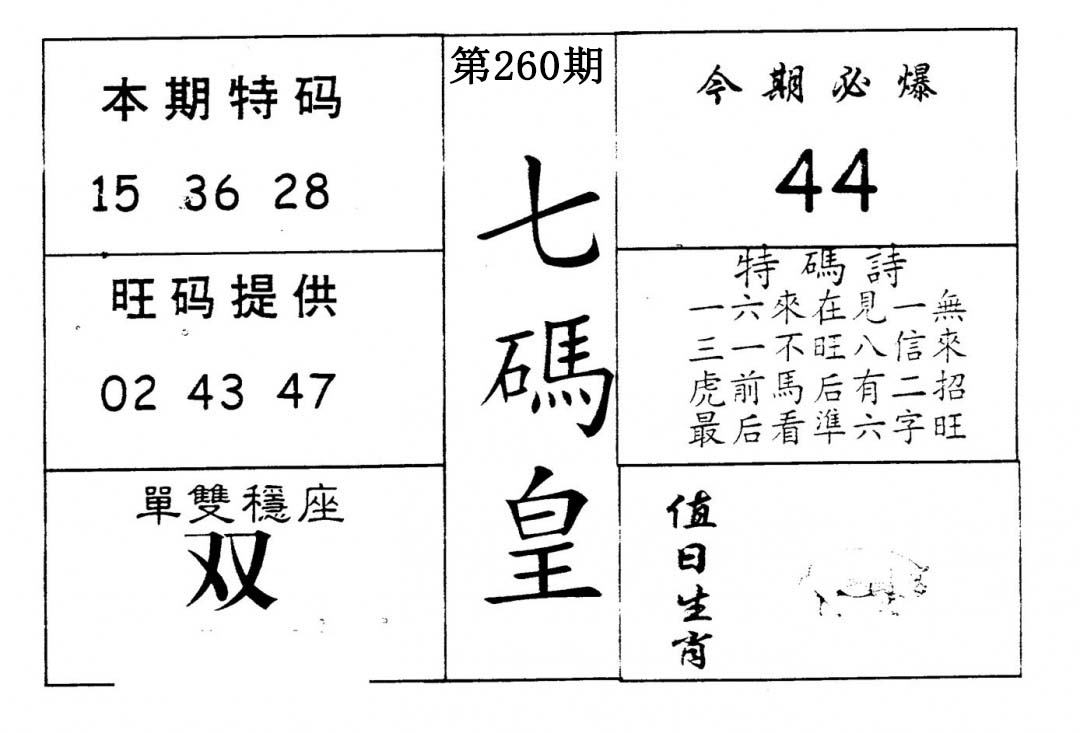 本期特码
15 36 28
旺码提供
02 43 47
單雙穩座
双
第260期
七碼皇
今期必爆
44
特碼詩
一六來在見一無
三一不旺八信來
虎前馬后有二招
最后看準六字旺
值日生肖